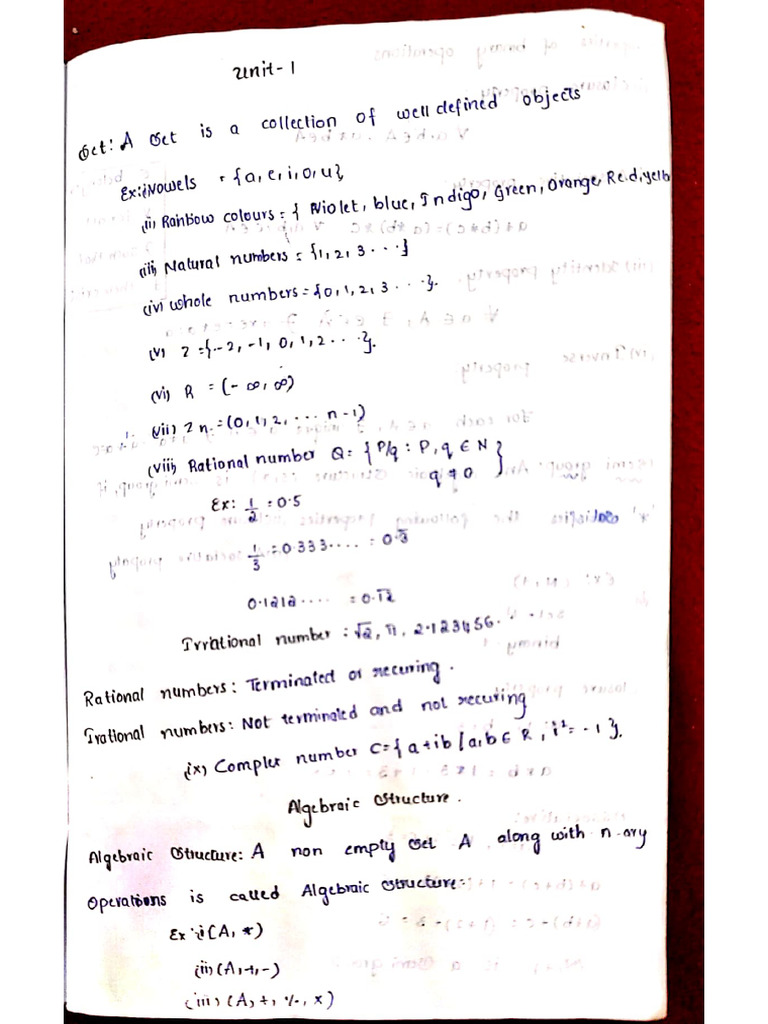 Unit-1
Set: A Set is a collection of well defined objects
Ex:(i) Vowels = {a, e, i, o, u},
(ii) Rainbow colours = { Violet, blue, Indigo, Green, Orange, Red, yello
(iii) Natural numbers = {1, 2, 3 ....}
(iv) whole numbers = {0, 1, 2, 3 ....}.
(v) Z = {-2, -1, 0, 1, 2 ...}.
(vi) R = (-∞, ∞)
(vii) Zn = (0, 1, 2, ... n-1)
(viii) Rational number Q = { P/q : P, q ∈ N
q ≠ 0 }
Ex: 1/2 = 0.5
1/3 = 0.333.... = 0.3̅
0.1212.... = 0.1̅2̅
Irrational number = √2, π, 2.123456..
Rational numbers: Terminated or recuring.
Irational numbers: Not terminated and not recuring
(ix) Complex number C = { a+ib / a, b ∈ R, i² = -1 }.
Algebraic Structure.
Algebraic Structure: A non empty Set A along with n-ary
Operations is called Algebraic structure:
Ex: i (A, *)
(ii) (A, +, -)
(iii) (A, +, %, ×)